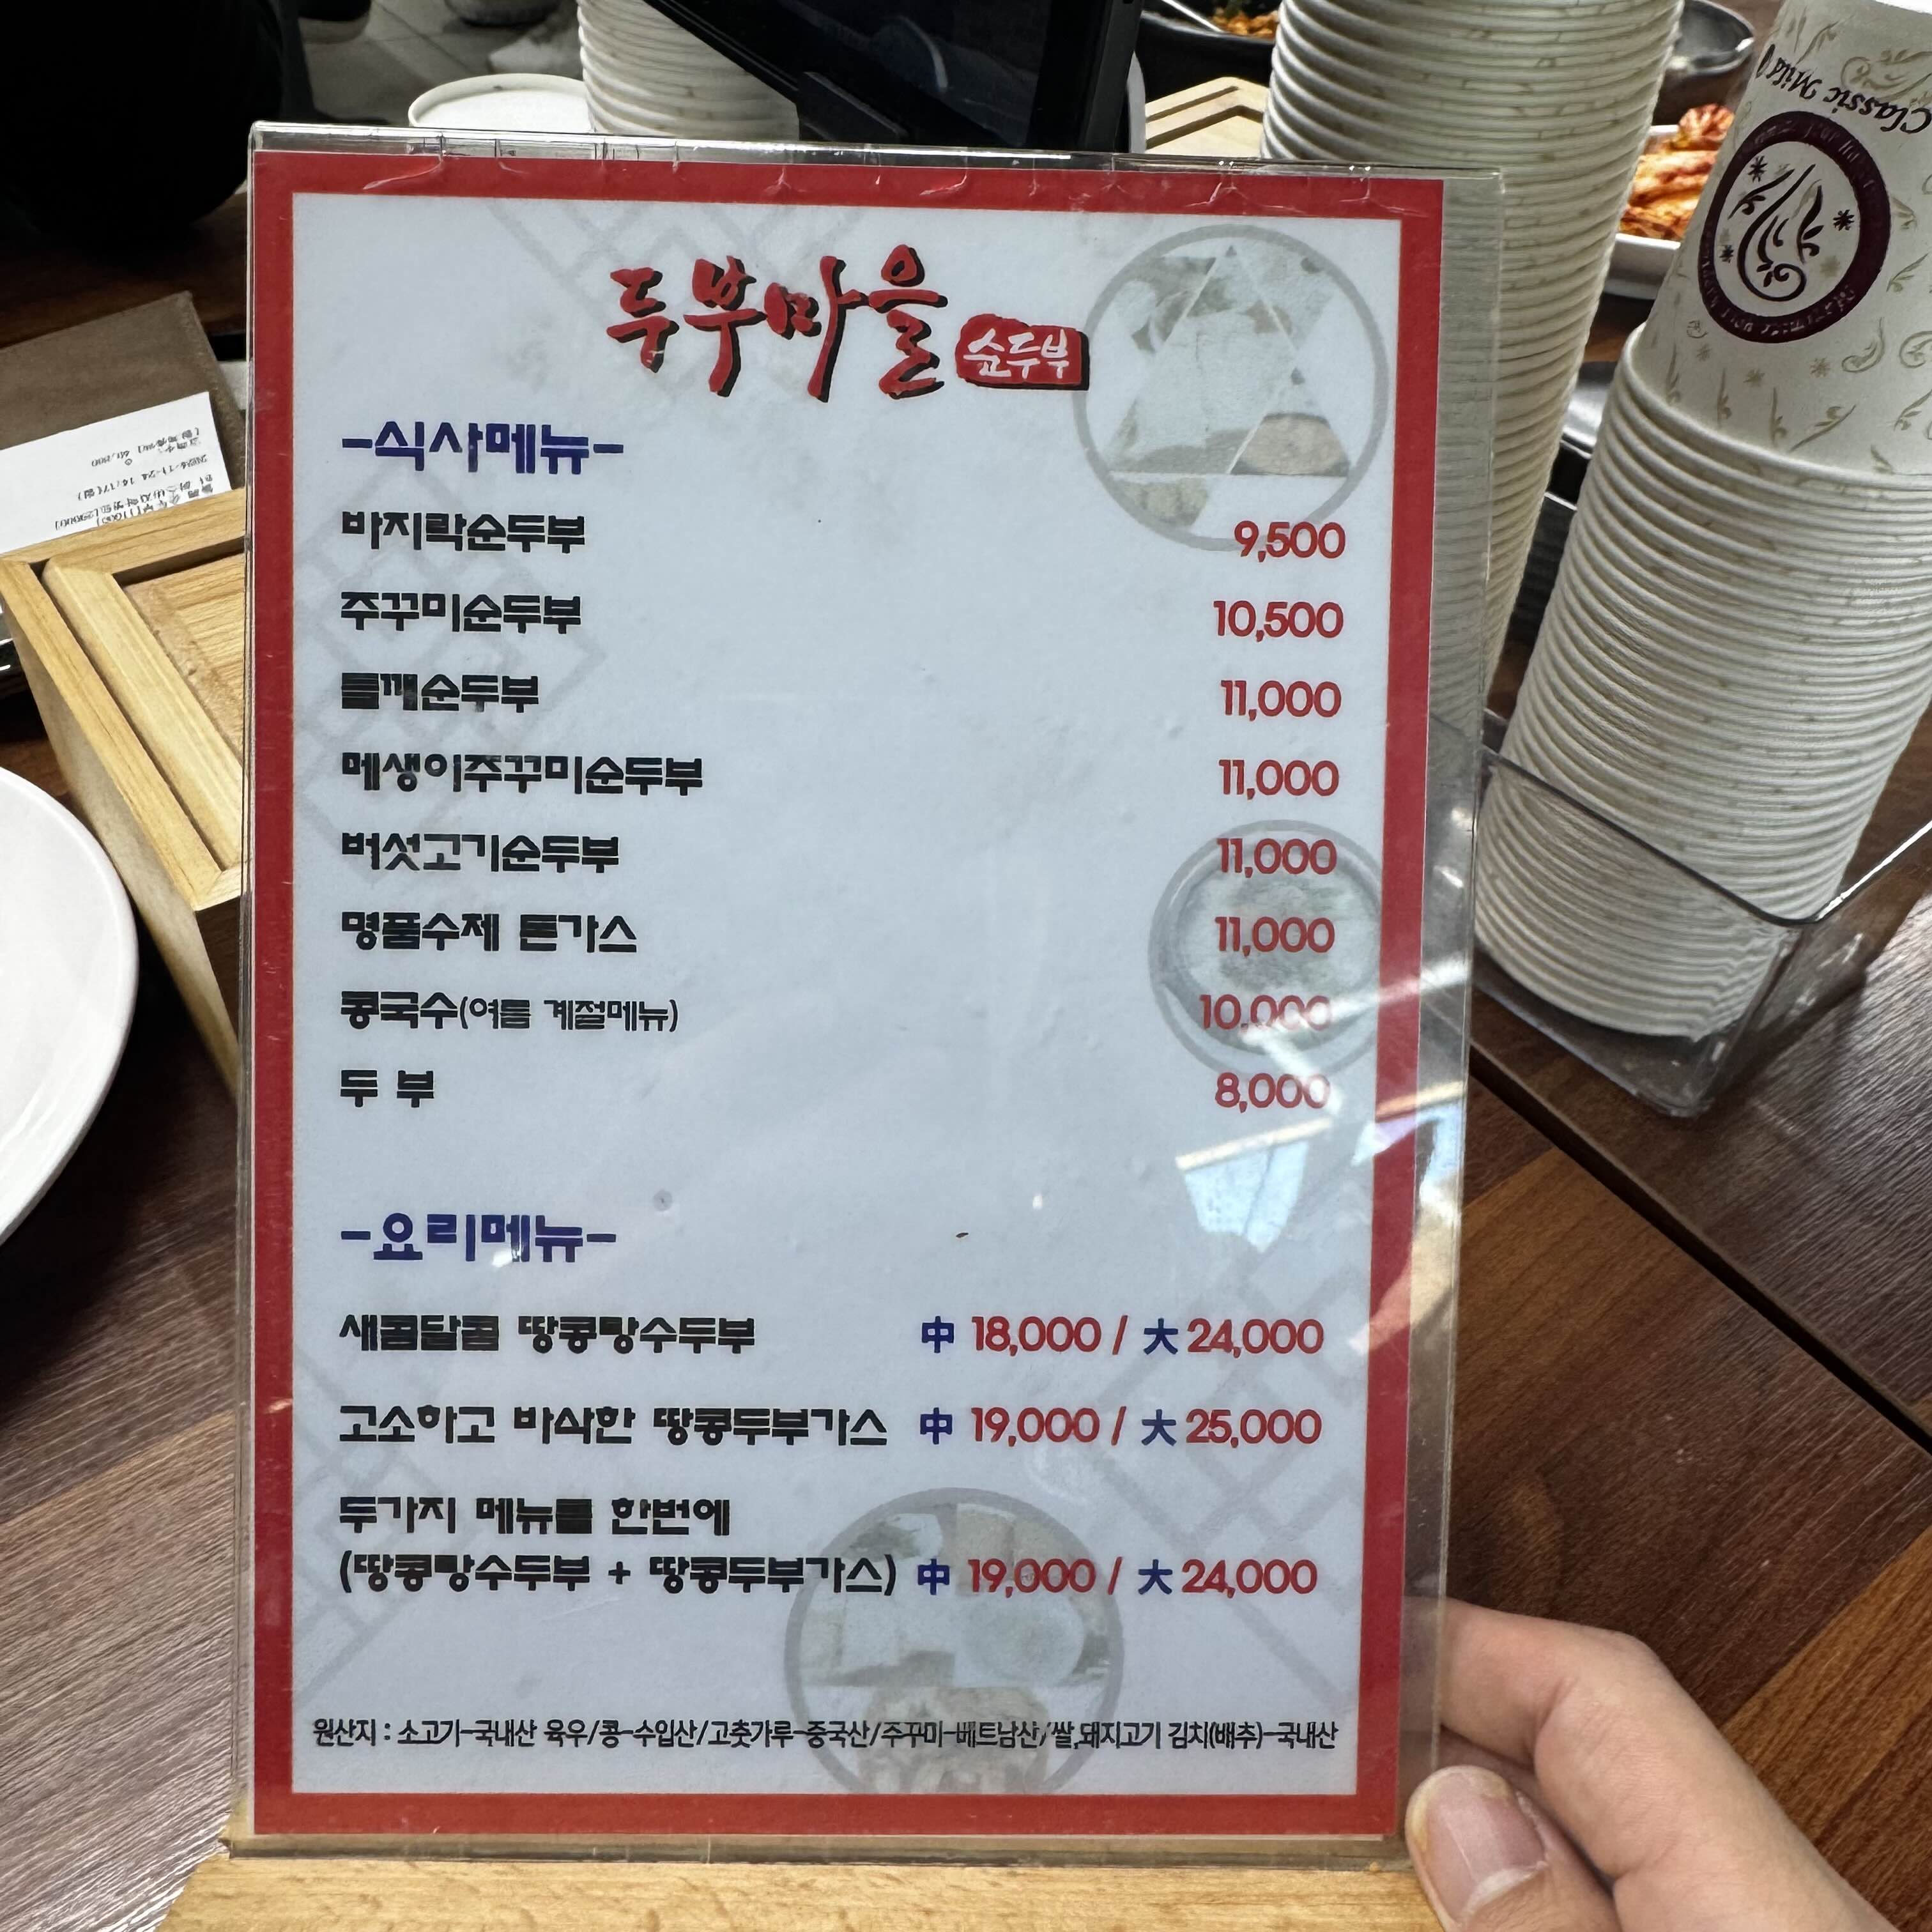 Classic Mild
두부마을 순두부
-식사메뉴-
바지락순두부 9,500
주꾸미순두부 10,500
들깨순두부 11,000
메생이주꾸미순두부 11,000
버섯고기순두부 11,000
명품수제 돈가스 11,000
콩국수(여름 계절메뉴) 10,000
두 부 8,000
-요리메뉴-
새콤달콤 땅콩탕수두부 中 18,000 / 大 24,000
고소하고 바삭한 땅콩두부가스 中 19,000 / 大 25,000
두가지 메뉴를 한번에
(땅콩탕수두부 + 땅콩두부가스) 中 19,000 / 大 24,000
원산지 : 소고기-국내산 육우/콩-수입산/고춧가루-중국산/주꾸미-베트남산/쌀,돼지고기 김치(배추)-국내산